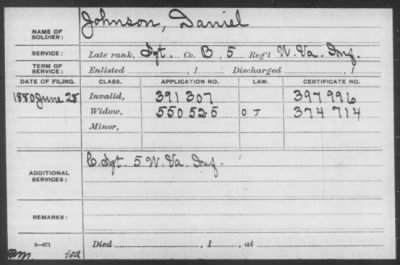 NAME OF SOLDIER: Johnson, Daniel
SERVICE: Late rank, Sgt. Co. B, 5 Reg't W. Va. Inf.
TERM OF SERVICE: Enlisted , 1 Discharged , 1
DATE OF FILING. CLASS. APPLICATION NO. LAW. CERTIFICATE NO.
1880 June 25 Invalid, 391 307 397 996
Widow, 550 525 O J 374 714
Minor,
ADDITIONAL SERVICES: C. Sgt. 5 W. Va. Inf.
REMARKS:
3-471 Died , 1 , at